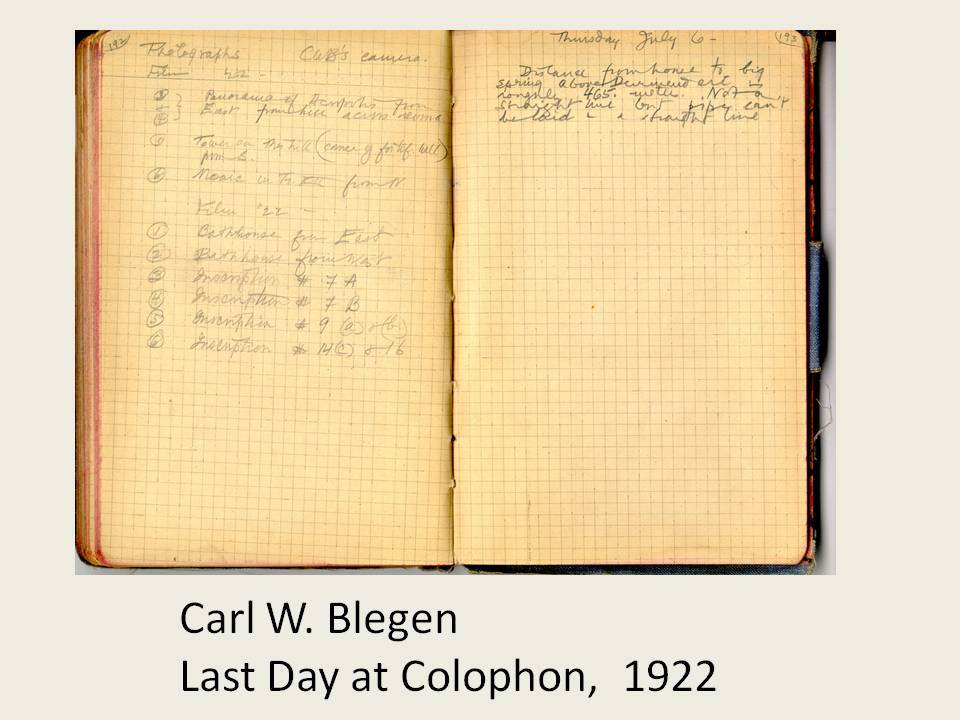 192
Photographs CWB's camera.
Film '22 -
Panorama of Acropolis from
East from hill across
Tower on the hill (corner of fortif. wall)
from S.
⑥ Mosaic in from N
Film '22 -
① Bathhouse from East
② Bathhouse from West
③ Inscription # 7 A
④ Inscription # 7 B
⑤ Inscription # 9 (a) (b)
⑥ Inscription # 14(c) & 16
193
Thursday July 6 -
Distance from house to big
spring above is
roughly 465. meters. Not a
straight line but pipe can't
be laid in a straight line
Carl W. Blegen
Last Day at Colophon, 1922